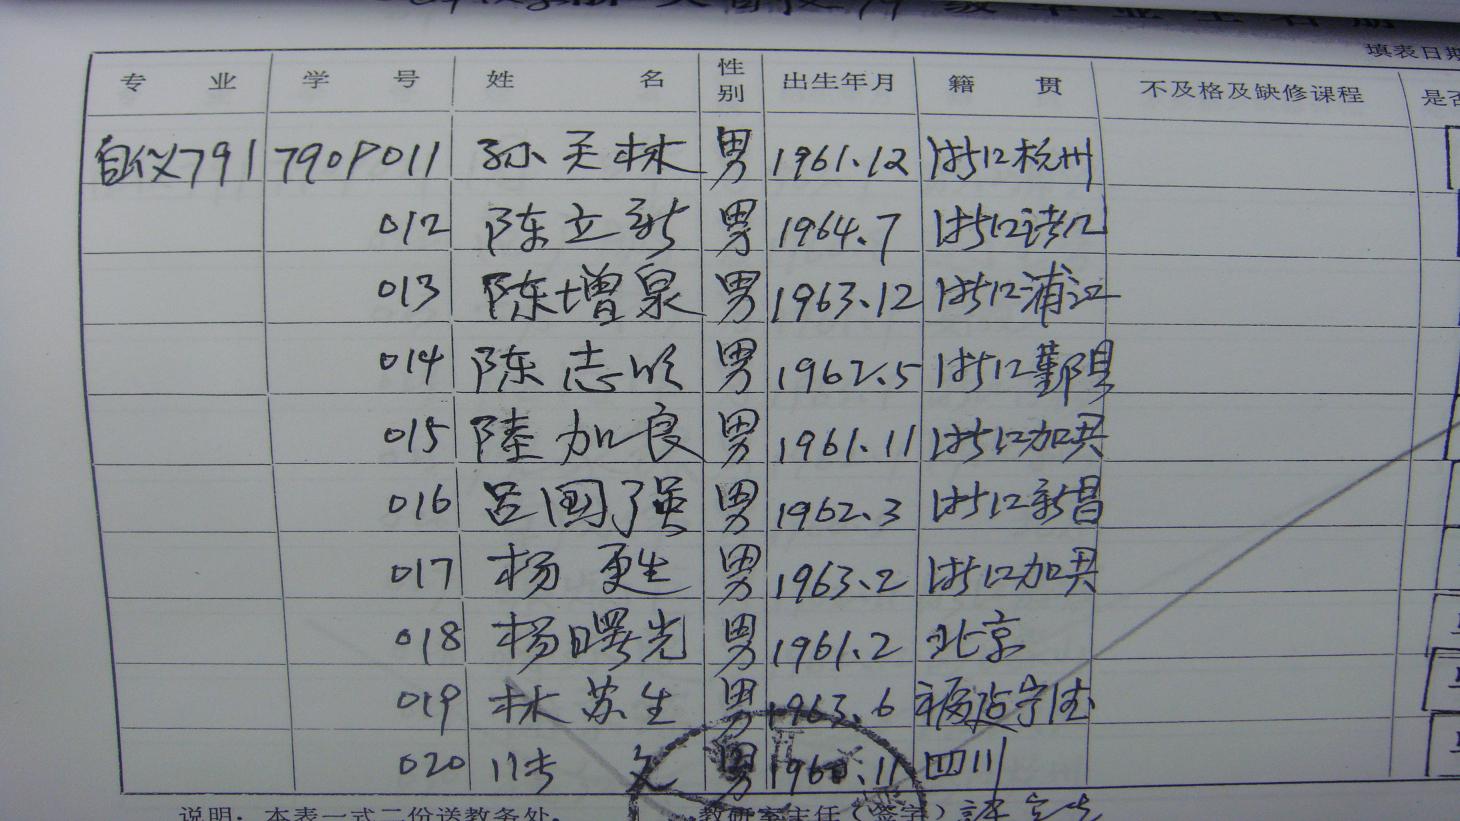 填表日期
专业 学号 姓名 性别 出生年月 籍贯 不及格及缺修课程 是否
自仪791 7909011 孙天林 男 1961.12 浙江杭州
012 陈立新 男 1964.7 浙江诸江
013 陈增泉 男 1963.12 浙江浦江
014 陈志 男 1962.5 浙江鄞县
015 陆加良 男 1961.11 浙江加兴
016 吕国强 男 1962.3 浙江新昌
017 杨更生 男 1963.2 浙江加兴
018 杨曙光 男 1961.2 北京
019 林苏生 男 1963.6 福建宁德
020 文 男 1960.11 四川
说明：本表一式二份送教务处. 教研室主任（签字）